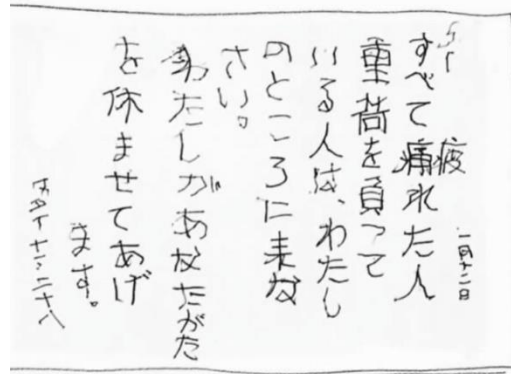 すべて疲れた人
重荷を負って
いる人は、わたし
のところに来な
さい。
わたしがあなたがた
を休ませてあげ
ます。
マタイ十一、二十八
一月十二日